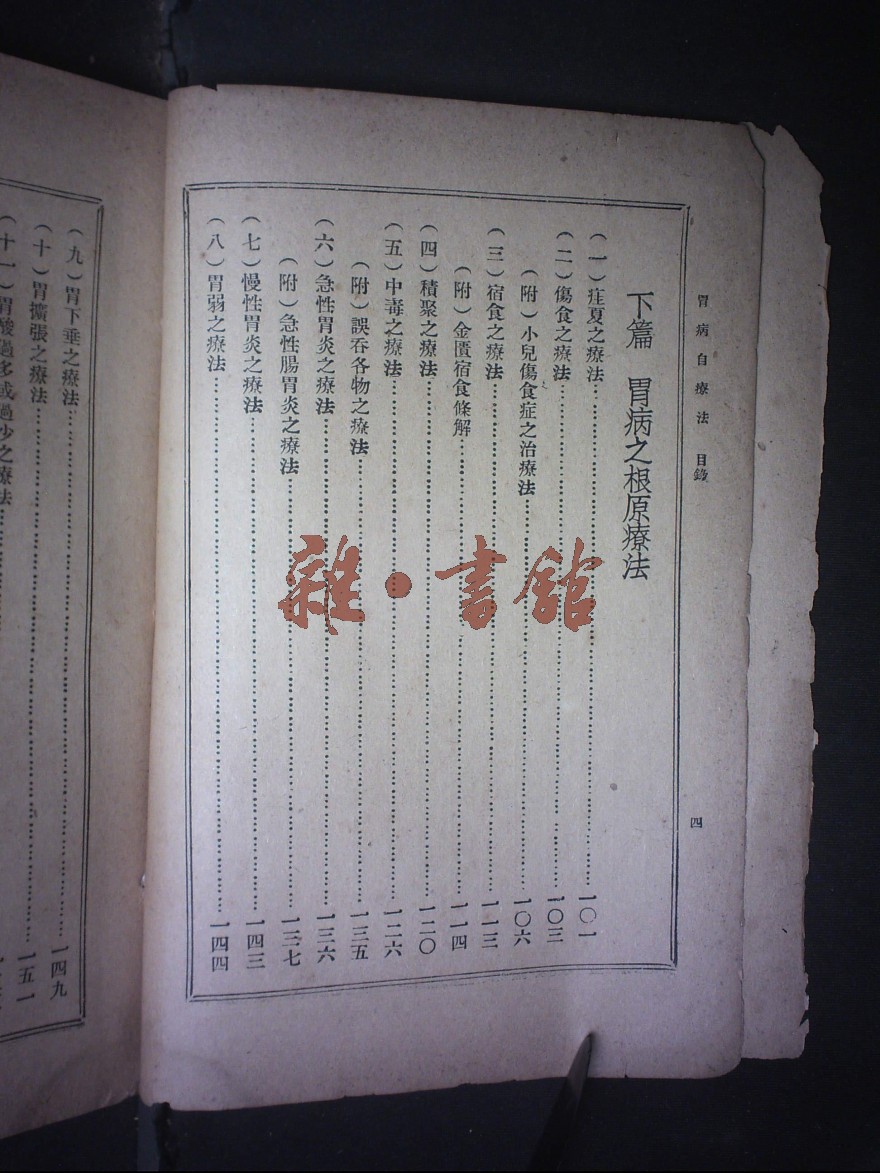 胃病自療法 目錄 四
下篇 胃病之根原療法
(一)疰夏之療法……一〇一
(二)傷食之療法……一〇三
(附)小兒傷食症之治療法……一〇六
(三)宿食之療法……一一三
(附)金匱宿食條解……一一四
(四)積聚之療法……一二〇
(五)中毒之療法……一二六
(附)誤吞各物之療法……一三五
(六)急性胃炎之療法……一三六
(附)急性腸胃炎之療法……一三七
(七)慢性胃炎之療法……一四三
(八)胃弱之療法……一四四
(九)胃下垂之療法……一四九
(十)胃擴張之療法……一五一
(十一)胃酸過多或過少之療法……
雜·書館